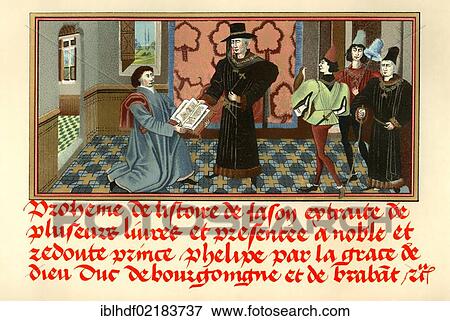 Proheme de listoire de Jason extraite de
pluseurs livres et presentee a noble et
redoute prince phelipe par la grace de
dieu Duc de bourgoingne et de brabāt, &c
FOTOSEARCH
iblhdf02183737 www.fotosearch.com